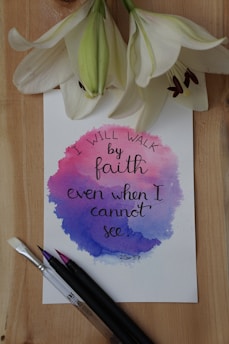 I WILL WALK
by
faith
even when I
cannot
see.